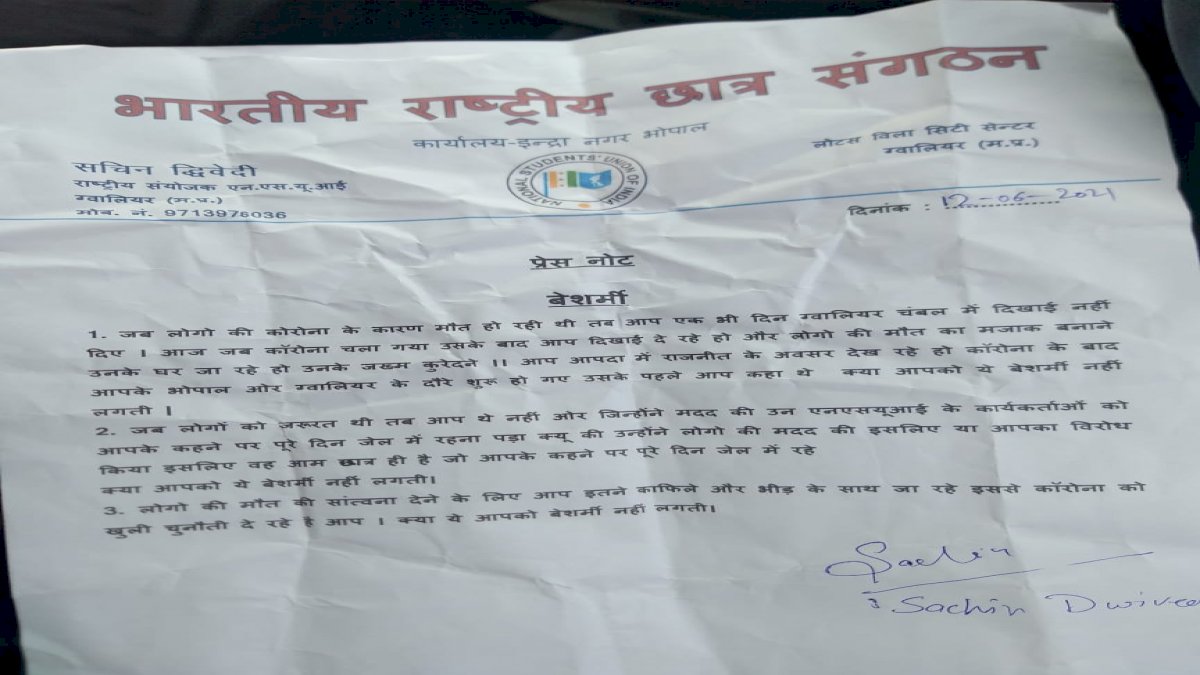 भारतीय राष्ट्रीय छात्र संगठन
कार्यालय-इन्द्रा नगर भोपाल
सचिन द्धिवेदी
राष्ट्रीय संयोजक एन.एस.यू.आई
ग्वालियर (म.प्र.)
मोब. नं. 9713976036
NATIONAL STUDENTS' UNION OF INDIA
लोटस विला सिटी सेन्टर
ग्वालियर (म.प्र.)
दिनांक : 12-06-2021
प्रेस नोट
बेशर्मी
1. जब लोगो की कोरोना के कारण मौत हो रही थी तब आप एक भी दिन ग्वालियर चंबल में दिखाई नहीं
दिए । आज जब कॉरोना चला गया उसके बाद आप दिखाई दे रहे हो और लोगो की मौत का मजाक बनाने
उनके घर जा रहे हो उनके जख्म कुरेदने ।। आप आपदा में राजनीत के अवसर देख रहे हो कॉरोना के बाद
आपके भोपाल ओर ग्वालियर के दौरे शुरू हो गए उसके पहले आप कहा थे क्या आपको ये बेशर्मी नहीं
लगती ।
2. जब लोगों को ज़रूरत थी तब आप थे नहीं ओर जिन्होंने मदद की उन एनएसयूआई के कार्यकर्ताओं को
आपके कहने पर पूरे दिन जेल में रहना पड़ा क्यू की उन्होंने लोगो की मदद की इसलिए या आपका विरोध
किया इसलिए वह आम छात्र ही है जो आपके कहने पर पूरे दिन जेल में रहे
क्या आपको ये बेशर्मी नहीं लगती।
3. लोगो की मौत की सांत्वना देने के लिए आप इतने काफिले और भीड़ के साथ जा रहे इससे कॉरोना को
खुली चुनौती दे रहे है आप । क्या ये आपको बेशर्मी नहीं लगती।
Sachin
Sachin Dwive